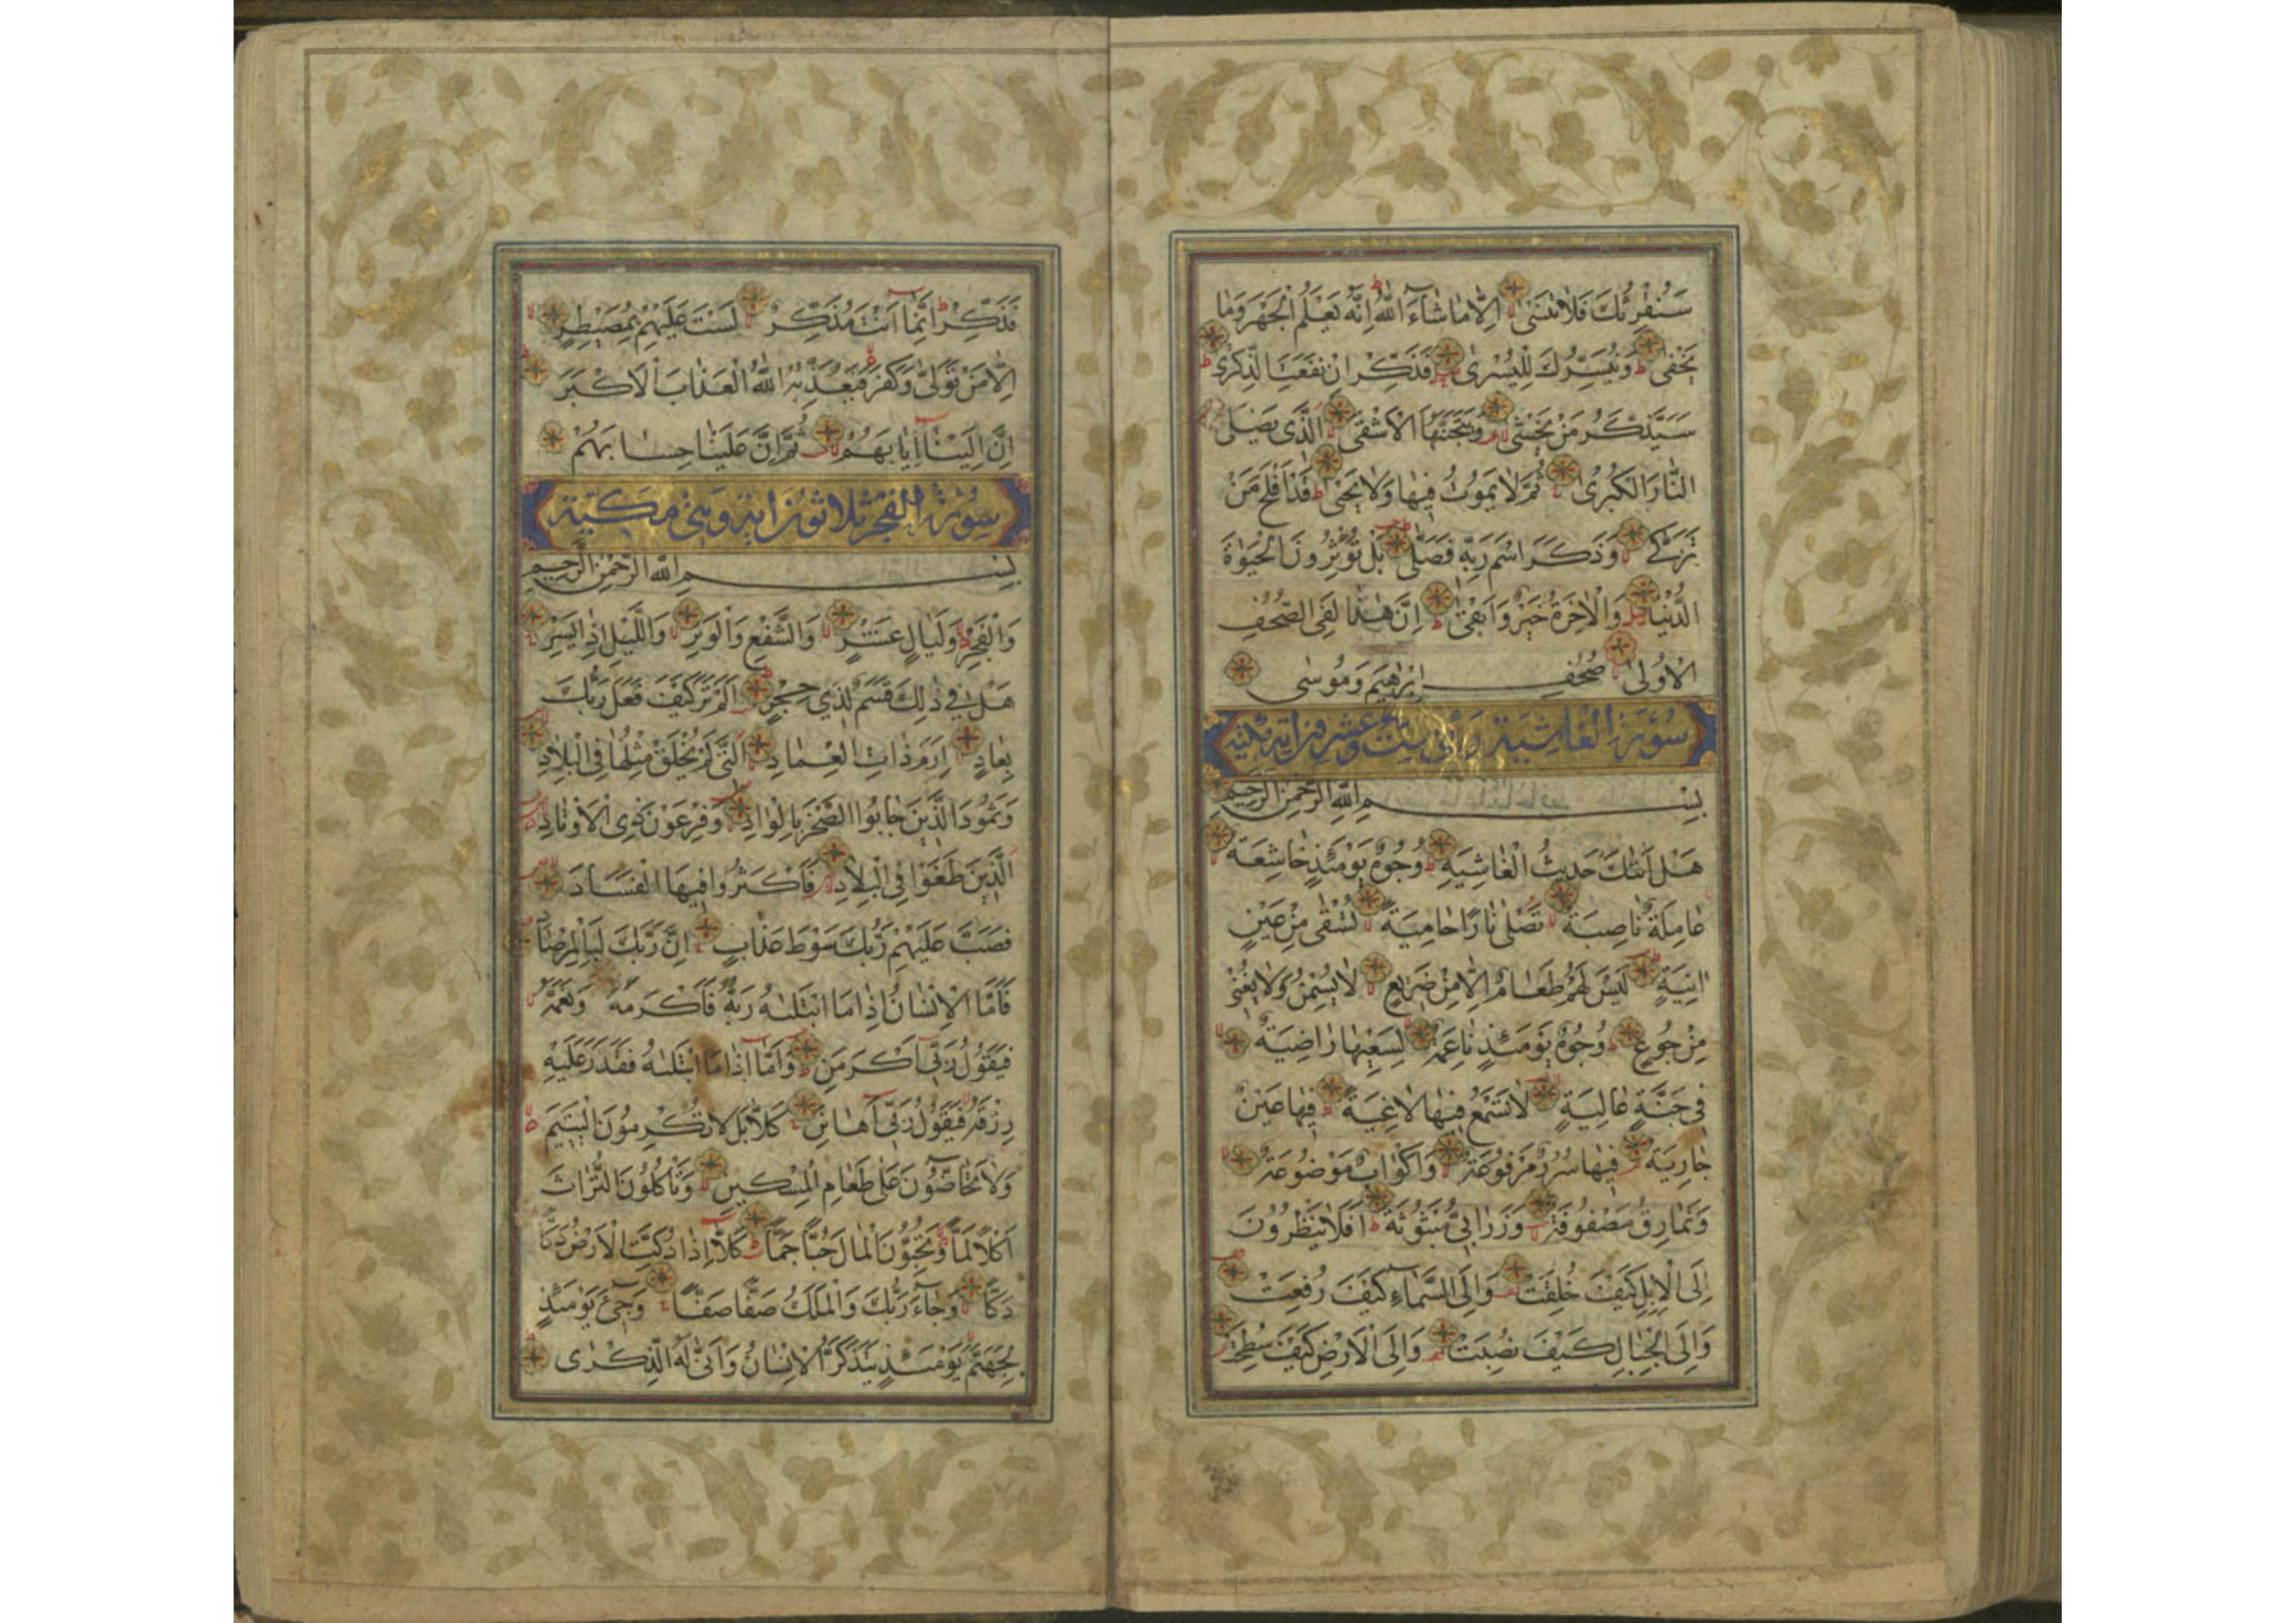 سَنُقْرِئُكَ فَلَا تَنْسٰى اِلَّا مَا شَاءَ اللّٰهُ اِنَّهُ يَعْلَمُ الْجَهْرَ وَمَا
يَخْفٰى وَنُيَسِّرُكَ لِلْيُسْرٰى فَذَكِّرْ اِنْ نَفَعَتِ الذِّكْرٰى
سَيَذَّكَّرُ مَنْ يَخْشٰى وَيَتَجَنَّبُهَا الْاَشْقَى الَّذِى يَصْلَى
النَّارَ الْكُبْرٰى ثُمَّ لَا يَمُوتُ فِيهَا وَلَا يَحْيٰى قَدْ اَفْلَحَ مَنْ
تَزَكّٰى وَذَكَرَ اسْمَ رَبِّهِ فَصَلّٰى بَلْ تُؤْثِرُونَ الْحَيٰوةَ
الدُّنْيَا وَالْاٰخِرَةُ خَيْرٌ وَاَبْقٰى اِنَّ هٰذَا لَفِى الصُّحُفِ
الْاُولٰى صُحُفِ اِبْرٰهِيمَ وَمُوسٰى
سُورَةُ الْغَاشِيَةِ وَهِيَ سِتّ وعِشْرُونَ اٰيَة مكية
بِسْمِ اللّٰهِ الرَّحْمٰنِ الرَّحِيمِ
هَلْ اَتٰىكَ حَدِيثُ الْغَاشِيَةِ وُجُوهٌ يَوْمَئِذٍ خَاشِعَةٌ
عَامِلَةٌ نَاصِبَةٌ تَصْلٰى نَارًا حَامِيَةً تُسْقٰى مِنْ عَيْنٍ
اٰنِيَةٍ لَيْسَ لَهُمْ طَعَامٌ اِلَّا مِنْ ضَرِيعٍ لَا يُسْمِنُ وَلَا يُغْنِى
مِنْ جُوعٍ وُجُوهٌ يَوْمَئِذٍ نَاعِمَةٌ لِسَعْيِهَا رَاضِيَةٌ
فِى جَنَّةٍ عَالِيَةٍ لَا تَسْمَعُ فِيهَا لَاغِيَةً فِيهَا عَيْنٌ
جَارِيَةٌ فِيهَا سُرُرٌ مَرْفُوعَةٌ وَاَكْوَابٌ مَوْضُوعَةٌ
وَنَمَارِقُ مَصْفُوفَةٌ وَزَرَابِىُّ مَبْثُوثَةٌ اَفَلَا يَنْظُرُونَ
اِلَى الْاِبِلِ كَيْفَ خُلِقَتْ وَاِلَى السَّمَاءِ كَيْفَ رُفِعَتْ
وَاِلَى الْجِبَالِ كَيْفَ نُصِبَتْ وَاِلَى الْاَرْضِ كَيْفَ سُطِحَتْ
فَذَكِّرْ اِنَّمَا اَنْتَ مُذَكِّرٌ لَسْتَ عَلَيْهِمْ بِمُصَيْطِرٍ
اِلَّا مَنْ تَوَلّٰى وَكَفَرَ فَيُعَذِّبُهُ اللّٰهُ الْعَذَابَ الْاَكْبَرَ
اِنَّ اِلَيْنَا اِيَابَهُمْ ثُمَّ اِنَّ عَلَيْنَا حِسَابَهُمْ
سُورَةُ الْفَجْرِ ثَلَاثُونَ اٰيَة وَهِيَ مَكِّيَّة
بِسْمِ اللّٰهِ الرَّحْمٰنِ الرَّحِيمِ
وَالْفَجْرِ وَلَيَالٍ عَشْرٍ وَالشَّفْعِ وَالْوَتْرِ وَاللَّيْلِ اِذَا يَسْرِ
هَلْ فِى ذٰلِكَ قَسَمٌ لِذِى حِجْرٍ اَلَمْ تَرَ كَيْفَ فَعَلَ رَبُّكَ
بِعَادٍ اِرَمَ ذَاتِ الْعِمَادِ الَّتِى لَمْ يُخْلَقْ مِثْلُهَا فِى الْبِلَادِ
وَثَمُودَ الَّذِينَ جَابُوا الصَّخْرَ بِالْوَادِ وَفِرْعَوْنَ ذِى الْاَوْتَادِ
الَّذِينَ طَغَوْا فِى الْبِلَادِ فَاَكْثَرُوا فِيهَا الْفَسَادَ
فَصَبَّ عَلَيْهِمْ رَبُّكَ سَوْطَ عَذَابٍ اِنَّ رَبَّكَ لَبِالْمِرْصَادِ
فَاَمَّا الْاِنْسَانُ اِذَا مَا ابْتَلٰىهُ رَبُّهُ فَاَكْرَمَهُ وَنَعَّمَهُ
فَيَقُولُ رَبِّى اَكْرَمَنِ وَاَمَّا اِذَا مَا ابْتَلٰىهُ فَقَدَرَ عَلَيْهِ
رِزْقَهُ فَيَقُولُ رَبِّى اَهَانَنِ كَلَّا بَلْ لَا تُكْرِمُونَ الْيَتِيمَ
وَلَا تَحَاضُّونَ عَلٰى طَعَامِ الْمِسْكِينِ وَتَأْكُلُونَ التُّرَاثَ
اَكْلًا لَمًّا وَتُحِبُّونَ الْمَالَ حُبًّا جَمًّا كَلَّا اِذَا دُكَّتِ الْاَرْضُ دَكًّا
دَكًّا وَجَاءَ رَبُّكَ وَالْمَلَكُ صَفًّا صَفًّا وَجِىءَ يَوْمَئِذٍ
بِجَهَنَّمَ يَوْمَئِذٍ يَتَذَكَّرُ الْاِنْسَانُ وَاَنّٰى لَهُ الذِّكْرٰى